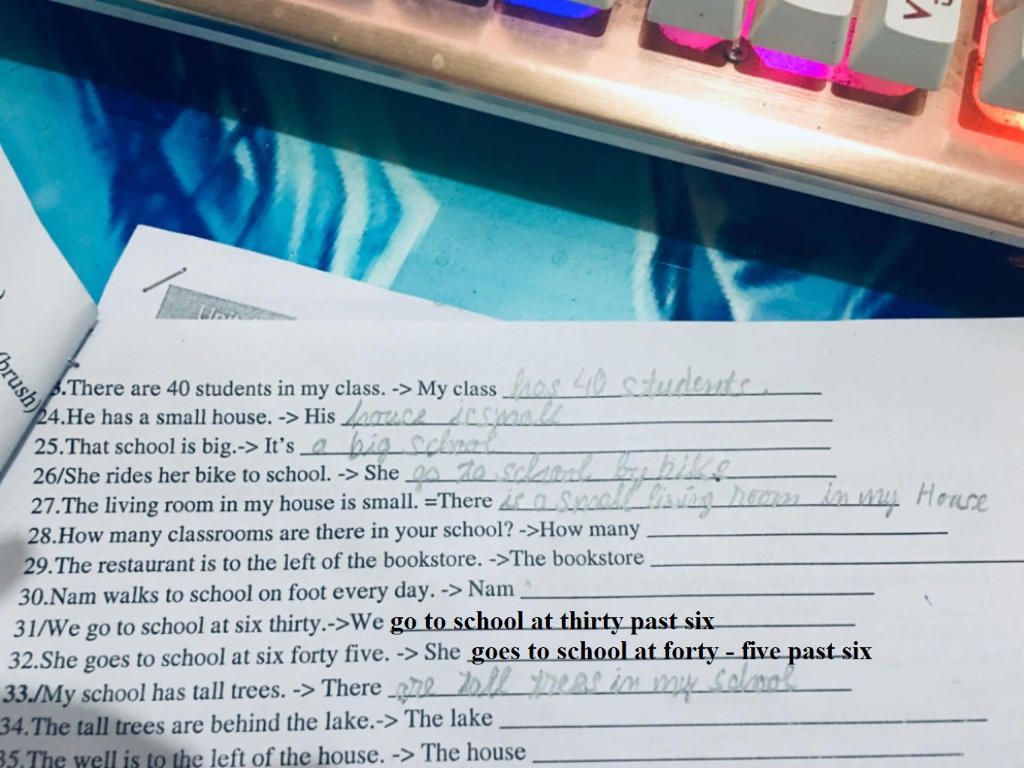 V
Unit
(brush)
3.There are 40 students in my class. -> My class has 40 students.
24.He has a small house. -> His house is small
25.That school is big.-> It's a big school
26/She rides her bike to school. -> She go to school by bike
27.The living room in my house is small. =There is a small living room in my House
28.How many classrooms are there in your school? ->How many
29.The restaurant is to the left of the bookstore. ->The bookstore
30.Nam walks to school on foot every day. -> Nam
31/We go to school at six thirty.->We go to school at thirty past six
32.She goes to school at six forty five. -> She goes to school at forty - five past six
33./My school has tall trees. -> There are tall trees in my school
34.The tall trees are behind the lake.-> The lake
35.The well is to the left of the house. -> The house